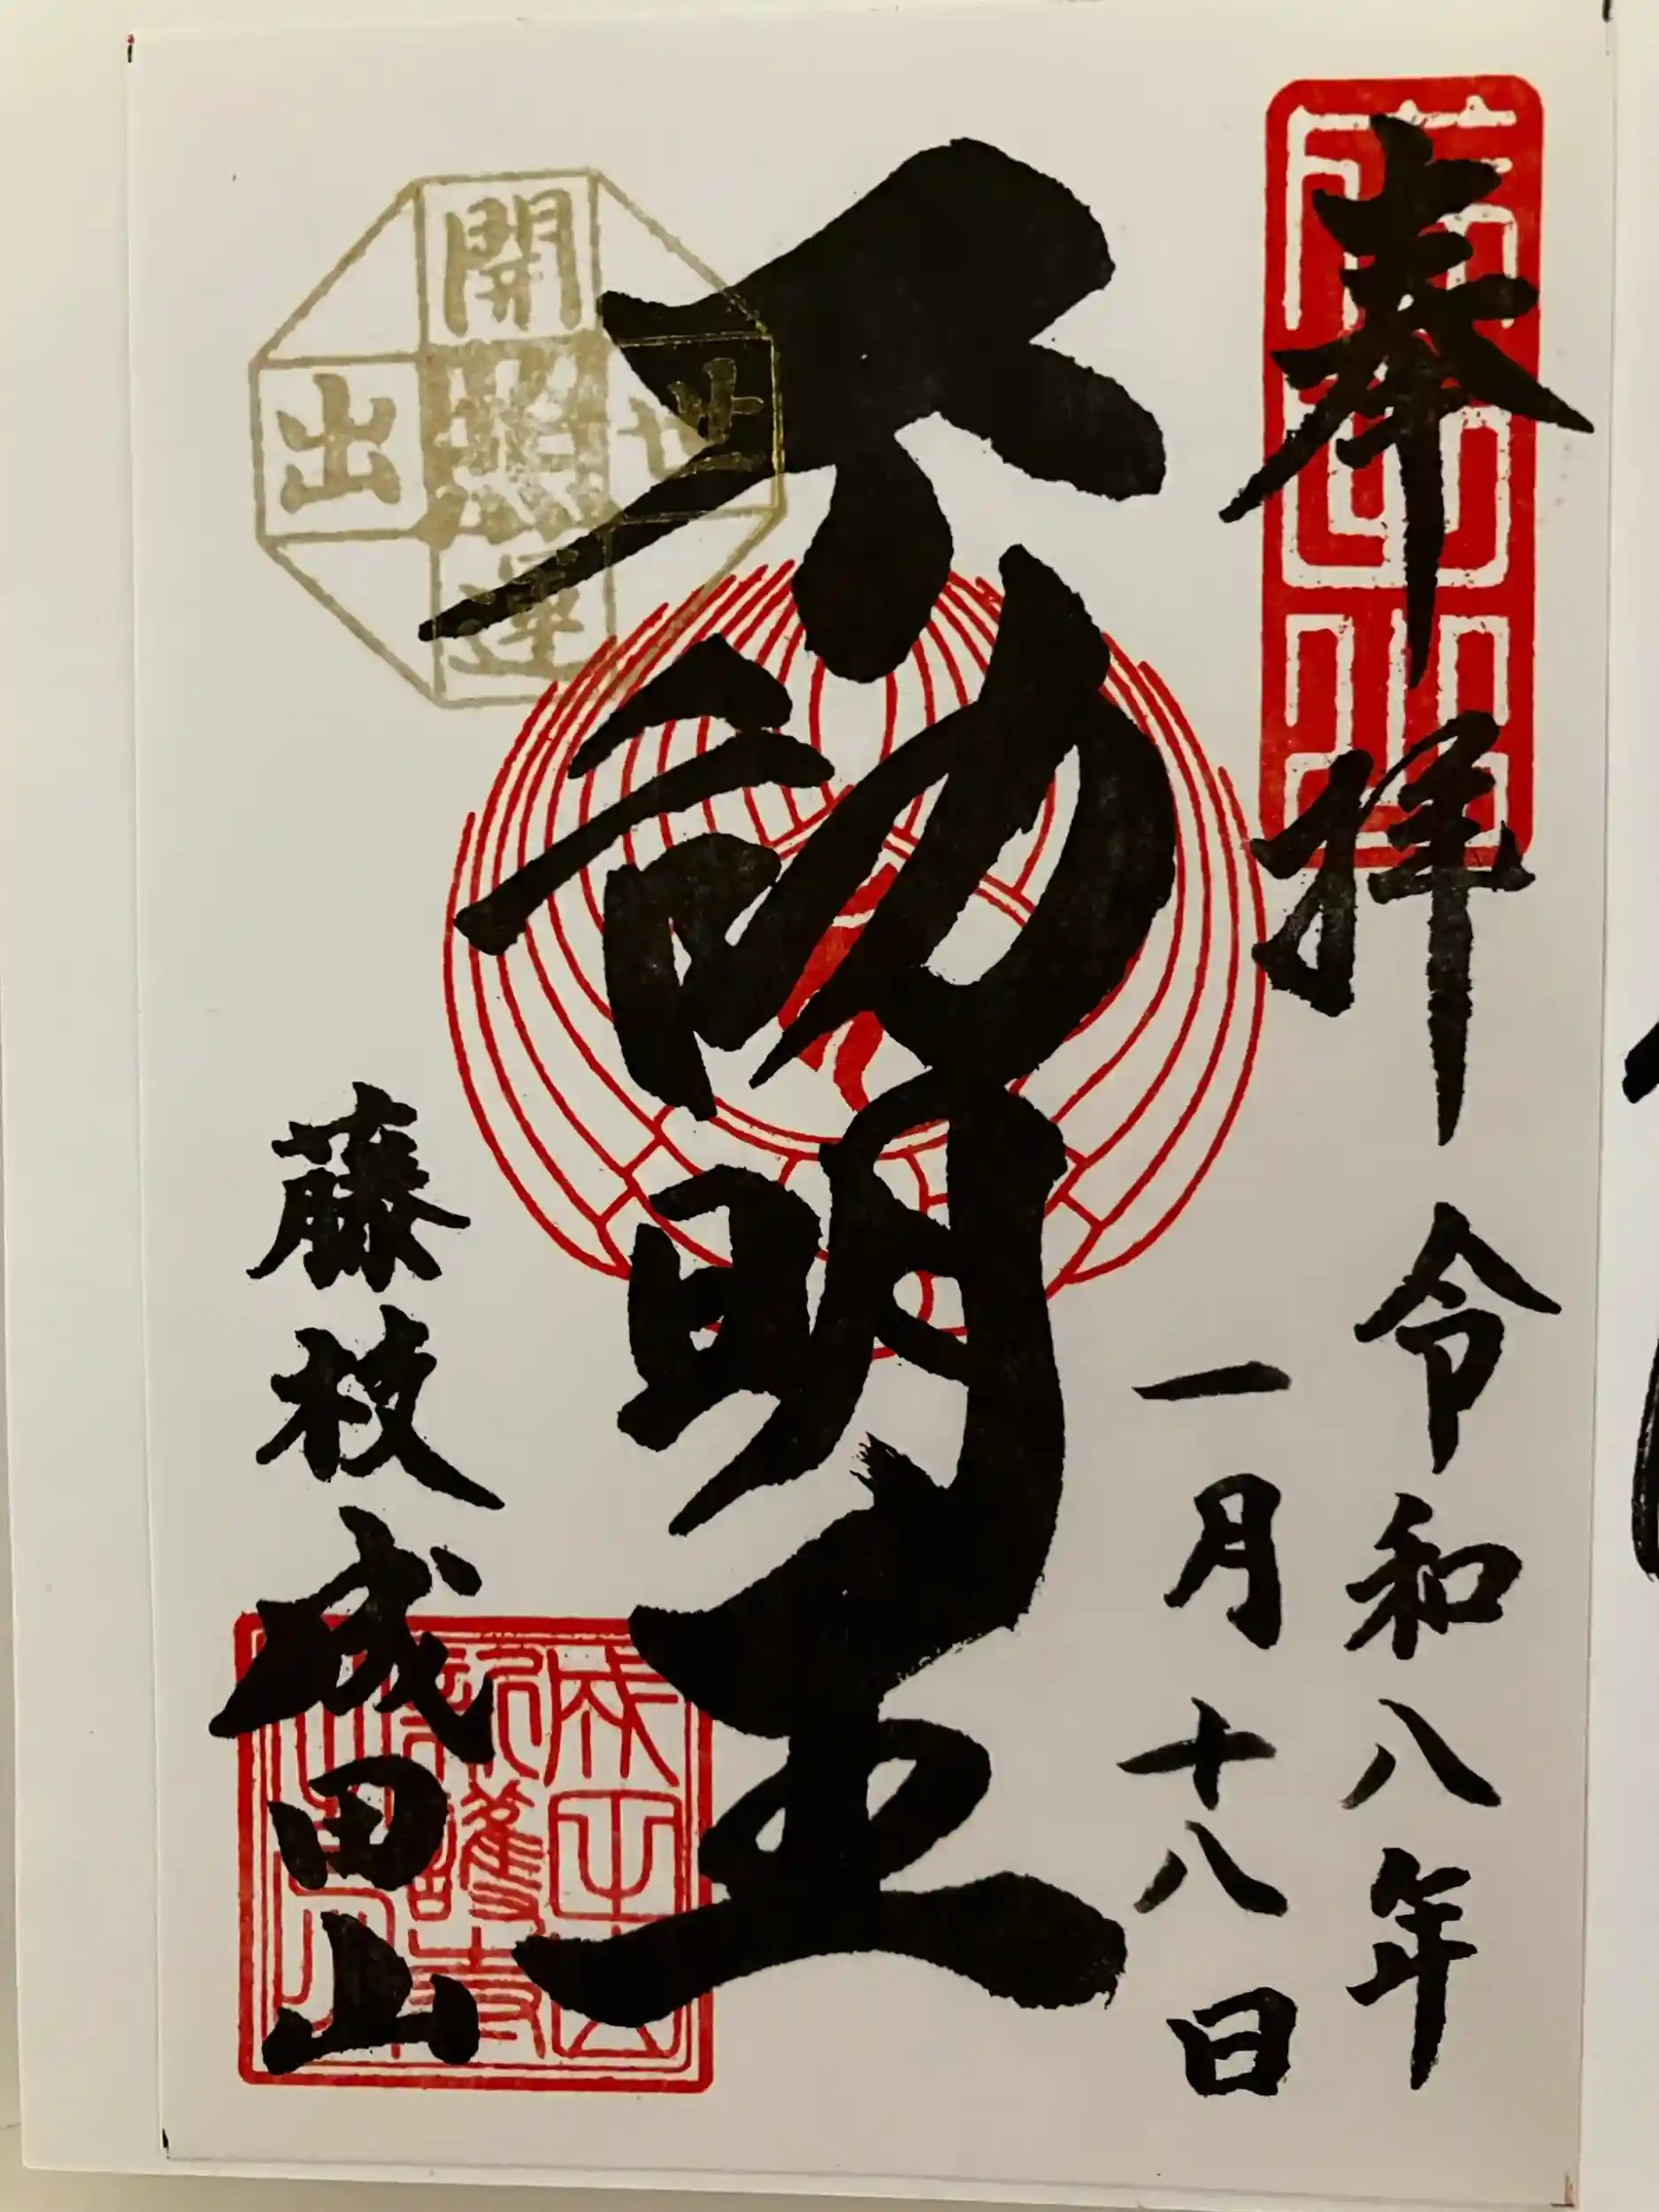 奉拝
令和八年
一月十八日
不動明王
藤枝成田山
開
出
世
運